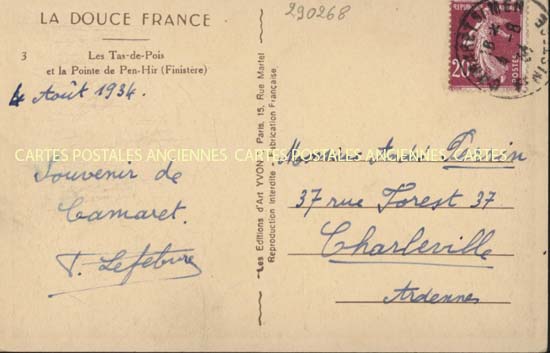 LA DOUCE FRANCE
3
Les Tas-de-Pois
et la Pointe de Pen-Hir (Finistère)
4 Août 1934.
Souvenir de
Camaret.
T. Lefebvre
CARTES POSTALES ANCIENNES CARTES POSTALES ANCIENNES CARTES
Les Editions d'Art YVON, Paris, 15, Rue Martel
Reproduction Interdite - Fabrication Française
290268
20
POSTES
Monsieur André
37 rue Forest 37
Charleville
Ardennes